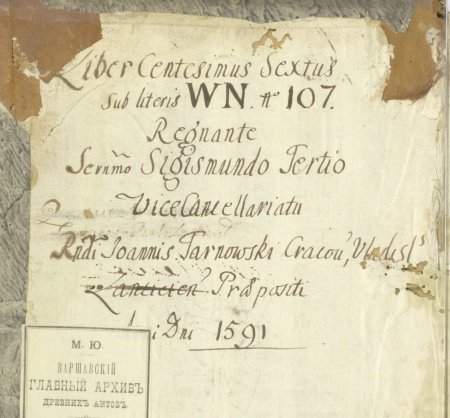 Liber Centesimus Sextus
Sub literis WN. No 107.
Regnante
Sernmo Sigismundo Tertio
ViceCancellariatu
Rndi Joannis Tarnowski Cracou, Vladisl
Præpositi
Dni 1591
М. Ю.
ВАРШАВСКІЙ
ГЛАВНЫЙ АРХИВЪ
ДРЕВНИХЪ АКТОВЪ.